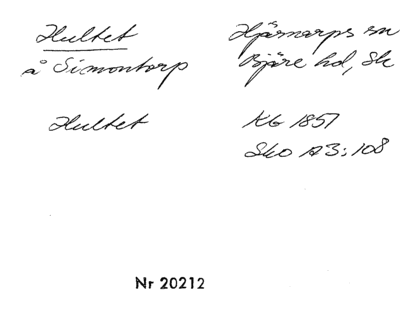 Hultet
å Simontorp
Hjärnarps sn
Bjäre hd, Sk
Hultet
KG 1857
Sko A3:108
Nr 20212